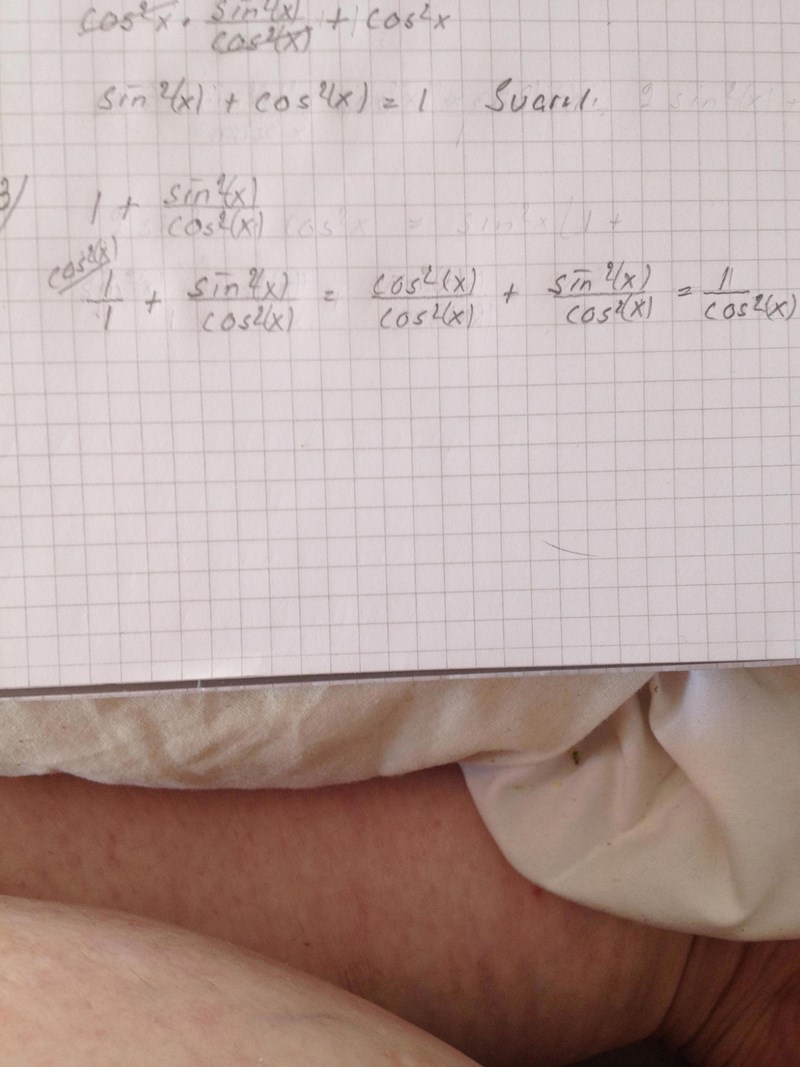 cos²x · sin²(x)/cos²(x) + cos²x
sin²(x) + cos²(x) = 1 Svar 1.
3) 1 + sin²(x)/cos²(x)
cos²(x) 1/1 + sin²(x)/cos²(x) = cos²(x)/cos²(x) + sin²(x)/cos²(x) = 1/cos²(x)